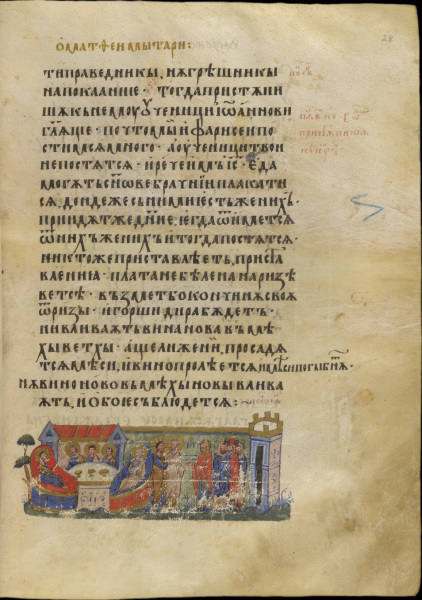 ѡ матѳеи мытари :
ти праведникы, нѫ грѣшникы
на покаание · тогда пристѫпи
шѫ къ немоу оученици іѡаннови
глѧще · почто мы и фарисеи по
стимсѧ много · а оученици твои
не постѧтсѧ · и рече имъ іс · еда
могѫтъ снѡве брачнїи плакати
сѧ, дондеже съ ними естъ женихь ·
прїидѫт же днїе, егда ѿиметсѧ
ѿ нихъ женихъ и тогда постѧтсѧ ·
никтоже приставлѣетъ, приста
вленїа · плата небѣлена на ризѣ
ветсѣ · възметъ бо кончинѫ своѫ
ѿ ризы · и горши дира бѫдетъ ·
ни вливаѫтъ вина нова въ мѣ
хы ветхы · аще ли же ни, просадѧ
тсѧ мѣси, и вино пролѣетсѧ и мѣси погыбнѫ ·
нѫ вино ново въ мѣхы новы влива
ѫтъ, и обое съблюдетсѧ :